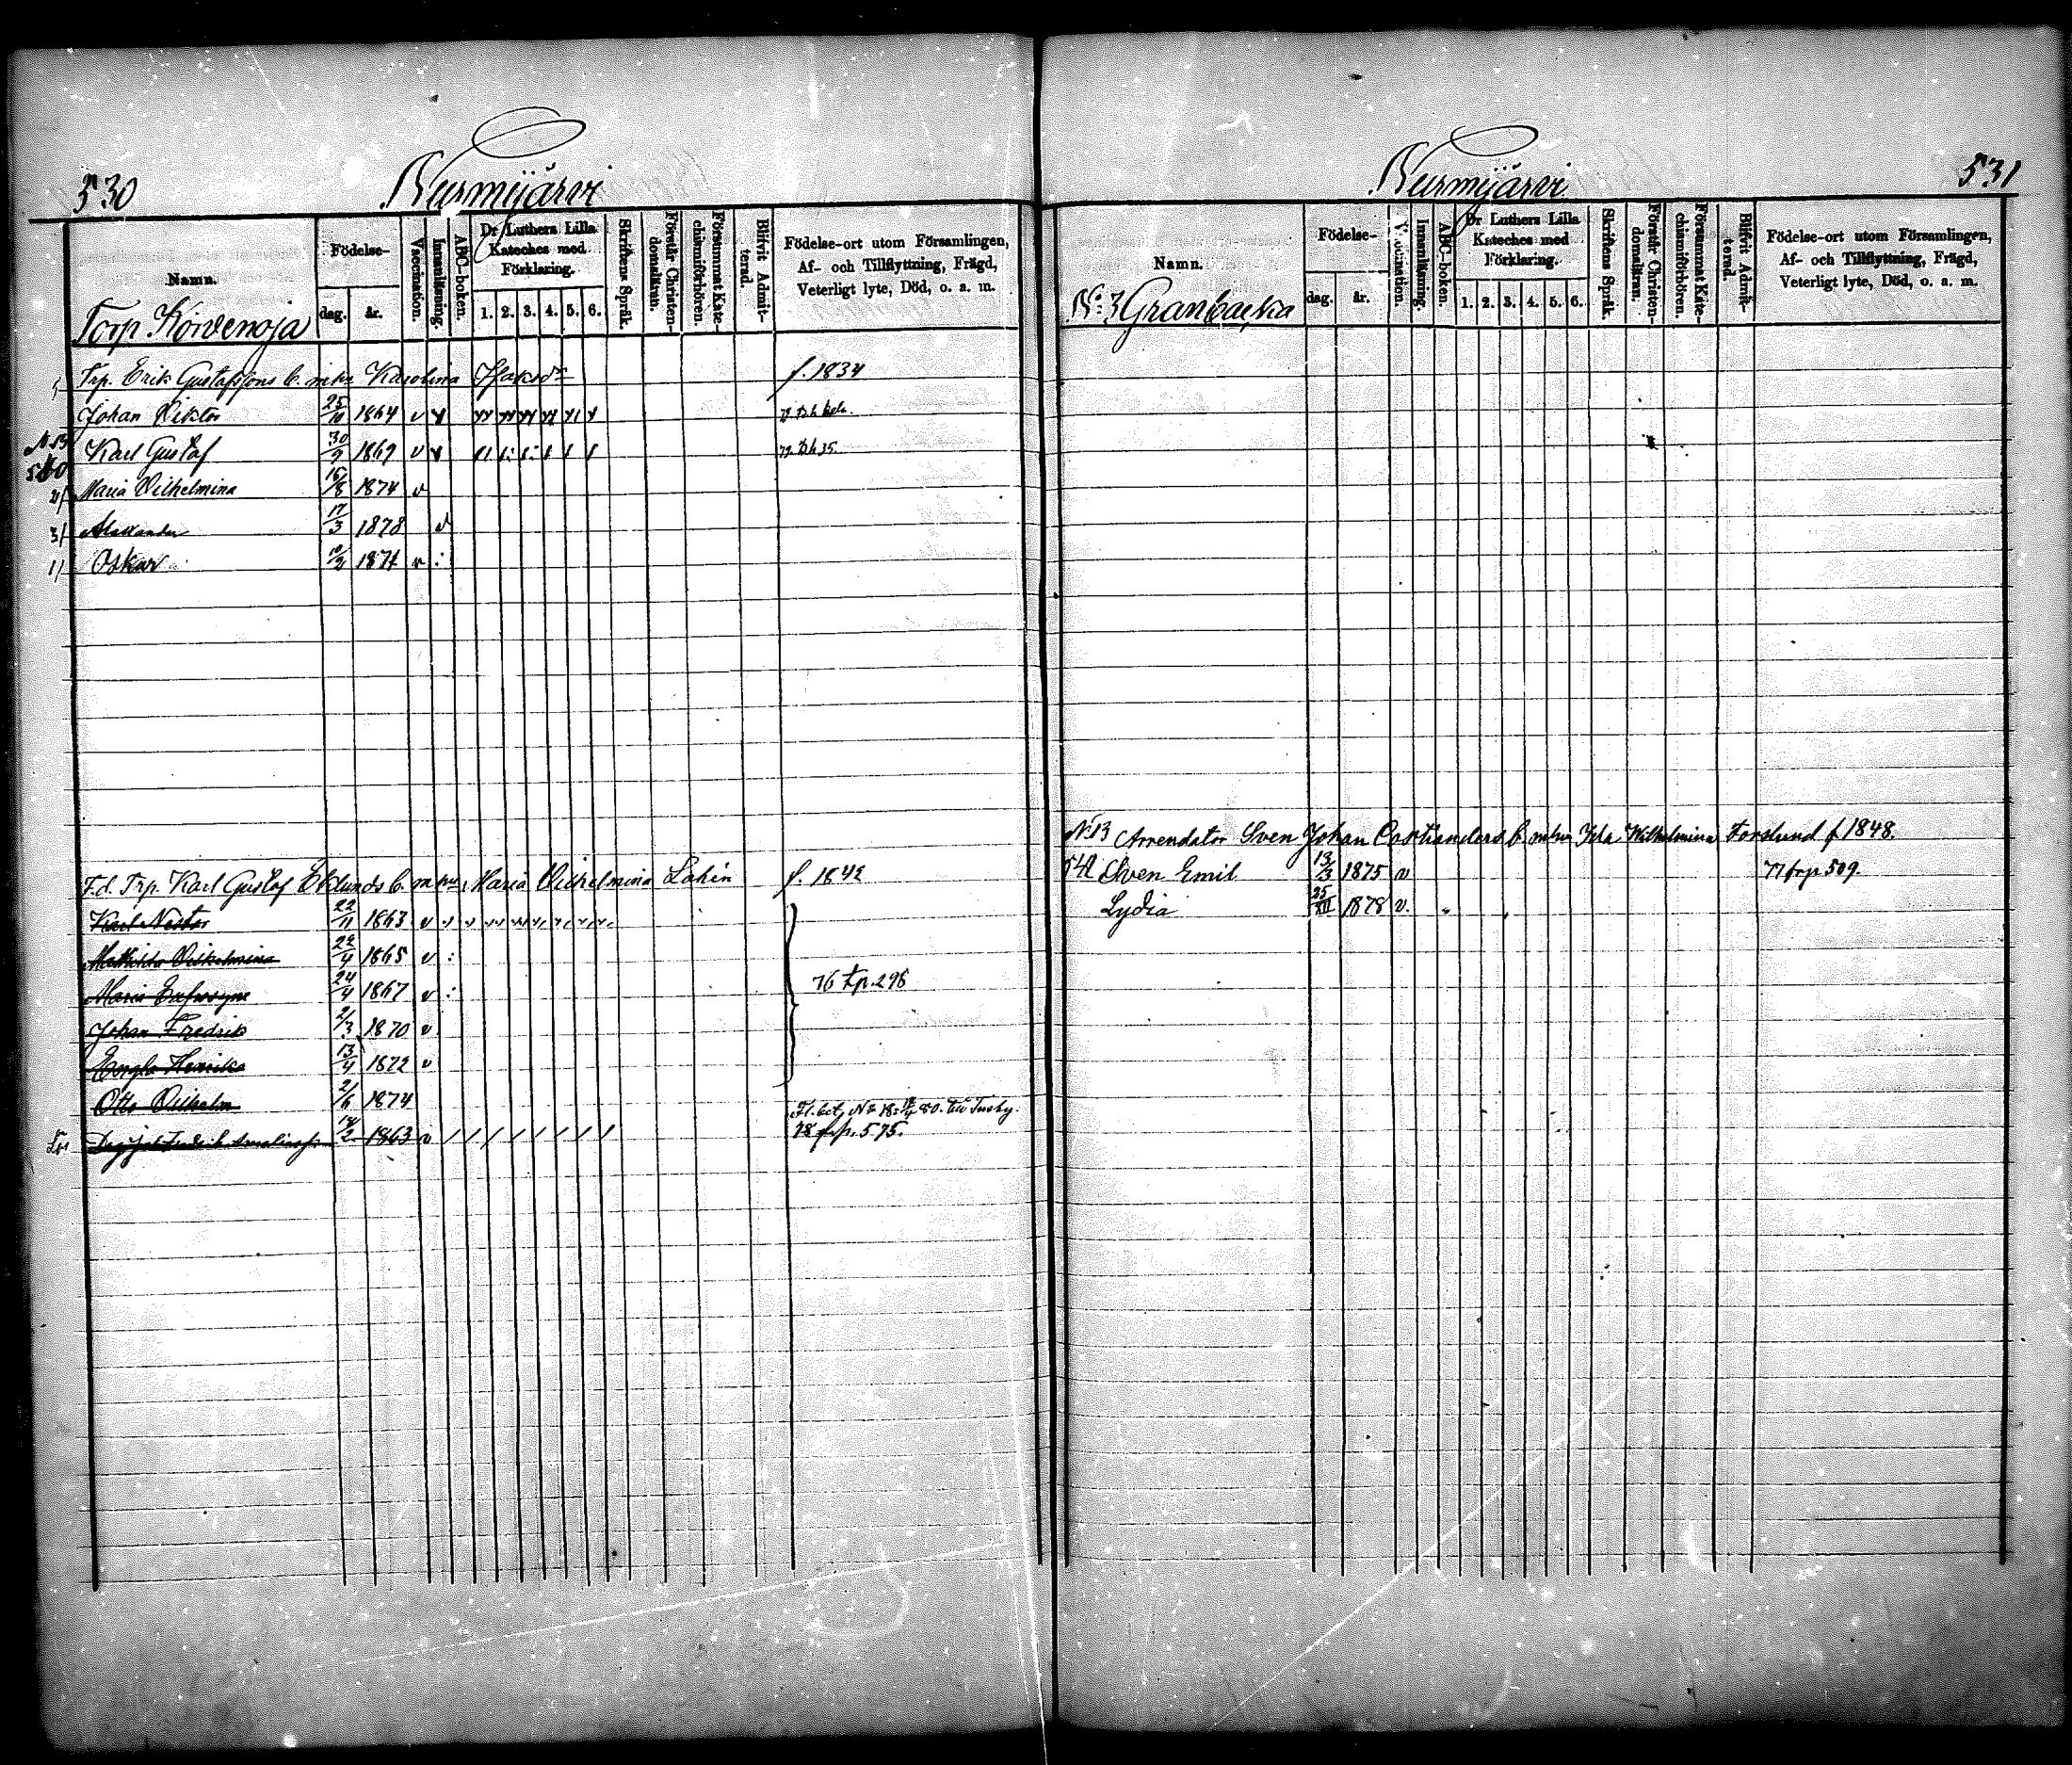 530
Nurmijärvi
Namn.
Födelse-
dag.
år.
Vaccination.
Innanläsning.
ABC-boken.
Dr Luthers Lilla
Kateches med
Förklaring.
1. 2. 3. 4. 5. 6.
Skriftens Språk.
Förstår Christen-
domsläran.
Försummat Kate-
chismiförhören.
Blifvit Admit-
terad.
Födelse-ort utom Församlingen,
Af- och Tillflyttning, Frägd,
Veterligt lyte, Död, o. a. m.
Torp Korvenoja
Trp. Erik Gustafssons b. m hu Karolina f. 1834
Johan Viktor 25/10 1864 v
N 13 Karl Gustaf 30/9 1869 v
540
2/ Maria Vilhelmina 16/8 1874 v
3/ Alexander 17/3 1878 v
1/ Oskar 10/2 1871 v
F.d. Trp. Karl Gustaf Eklunds b. m hu Maria Vilhelmina Lahin f. 1842
Karl Nestor 22/11 1863 v
Mathilda Vilhelmina 22/4 1865 v
Maria Eufrosyne 24/4 1867 v
76 tp. 298
Johan Fredrik 2/3 1870 v
Engla Henrika 13/4 1872 v
Otto Vilhelm 2/6 1874
Fl. bet. N 18 80. till Tusby.
1863 v 78 frp. 575.
531
Nurmijärvi
Namn.
Födelse-
dag.
år.
Vaccination.
Innanläsning.
ABC-boken.
Dr Luthers Lilla
Kateches med
Förklaring.
1. 2. 3. 4. 5. 6.
Skriftens Språk.
Förstår Christen-
domsläran.
Försummat Kate-
chismiförhören.
Blifvit Admit-
terad.
Födelse-ort utom Församlingen,
Af- och Tillflyttning, Frägd,
Veterligt lyte, Död, o. a. m.
No: 3 Granbacka
N 13 Arrendator Sven Johan Castianders b. m hu Ida Wilhelmina Forslund f 1848.
542 Sven Emil 13/3 1875 v 77 frp 509.
Lydia 25/XII 1878 v.